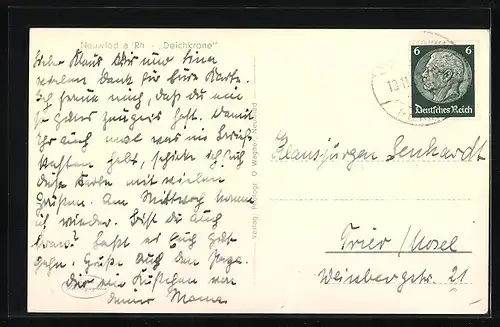 Neuwied a/Rh. - „Deichkrone"
Lieber Klaus Dir und Tina
vielen Dank für Eure Karte.
Ich freue mich, daß Du ein
so gutes Zeugnis hast. Damit
Ihr auch mal was im Briefkasten habt, schicke ich Euch
diese Karte mit vielen
Grüßen. Am Mittwoch komme
ich wieder. Bist Du auch
brav? Laßt es Euch gut
gehn. Grüße auch den Papa.
Dir ein Küßchen von
deiner Mama
Verlag Photogr. O. Wagner Neuwied
6 6
Deutsches Reich
13.11
Klausjürgen Lenhardt
Trier/Mosel
Weinbergstr. 21